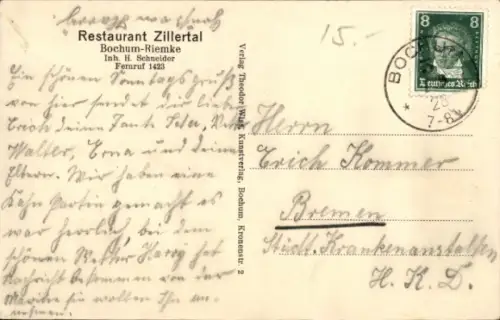 15.-
Restaurant Zillertal
Bochum-Riemke
Inh. H. Schneider
Fernruf 1423
Ein schönen Sonntagsgruß
von hier sendet dir lieber
Erich deine Tante
Walter, Erna und deine
Eltern. Wir haben eine
Kahn Partie gemacht es
war herrlich bei dem
schönen Wetter Harry hat
Nachricht bekommen von der
Marine sie wollen Ihn an-
nehmen.
Verlag Theodor Wirg, Kunstverlag, Bochum, Kronenstr. 2
8 8
Deutsches Reich
BOCHUM
7-8
Herrn
Erich Kommer
Bremen
Städt. Krankenanstalten
H. K. L.